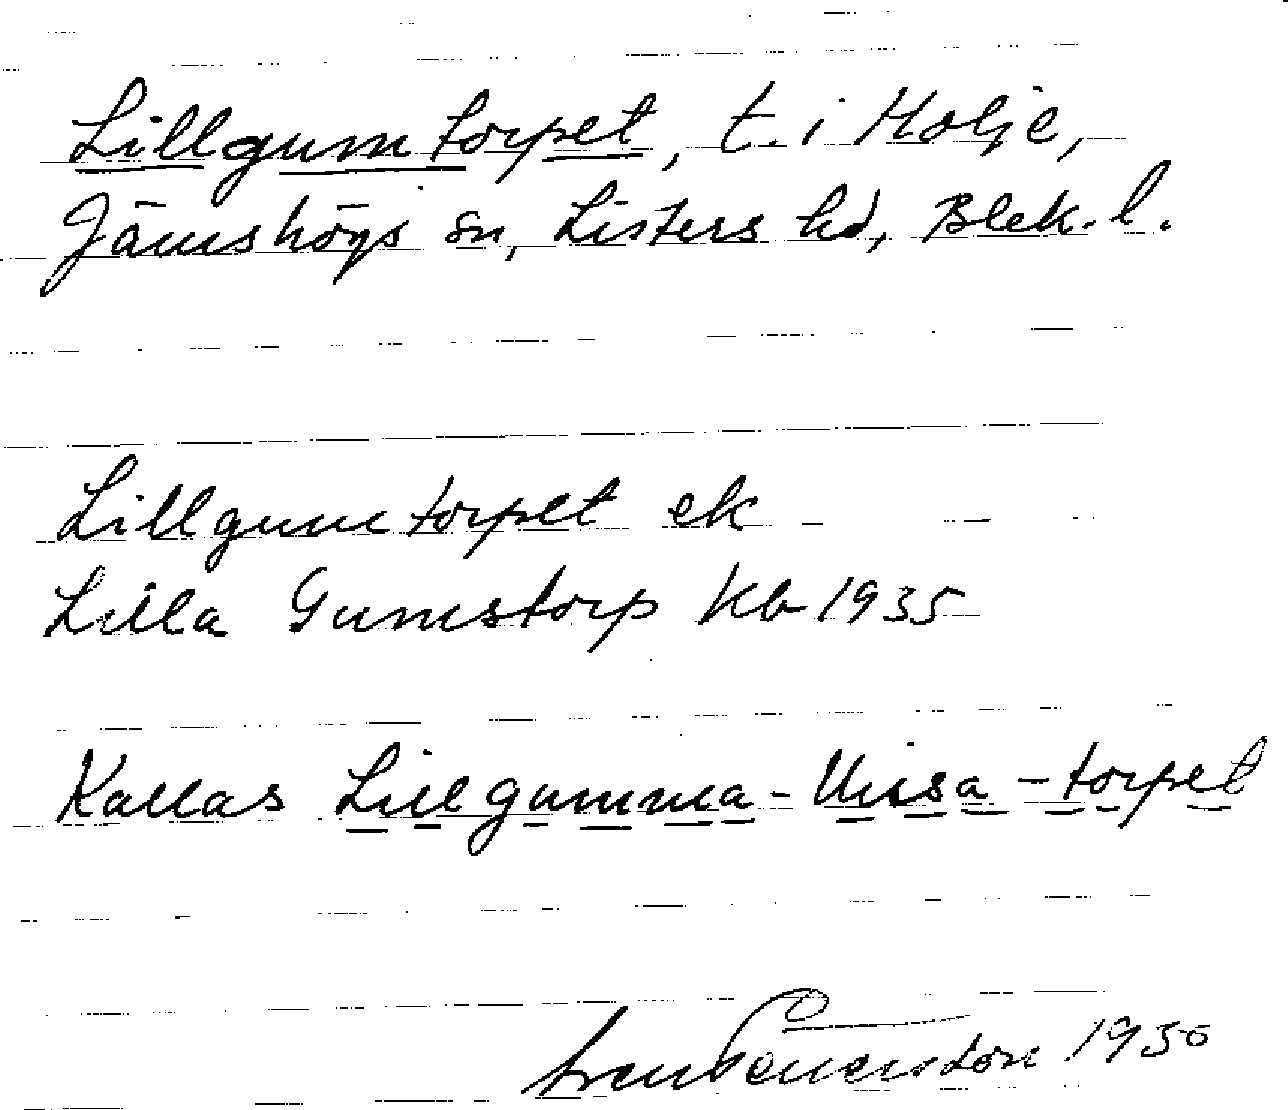 Lillgumtorpet, t. i Holje,
Jämshögs sn, Listers hd, Blek. l.
Lillgumtorpet ek
Lilla Gumstorp Kb 1935
Kallas Lillgumma-Nissa-torpet
1950